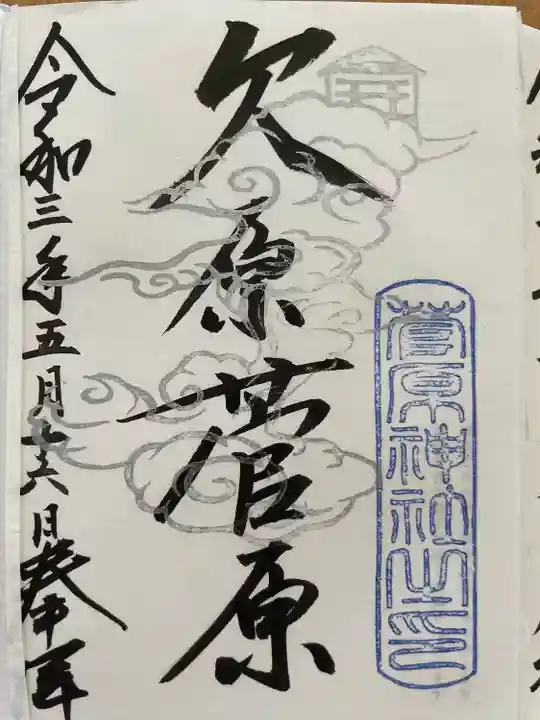 菅原神社之印
久原菅原
令和三年五月十六日